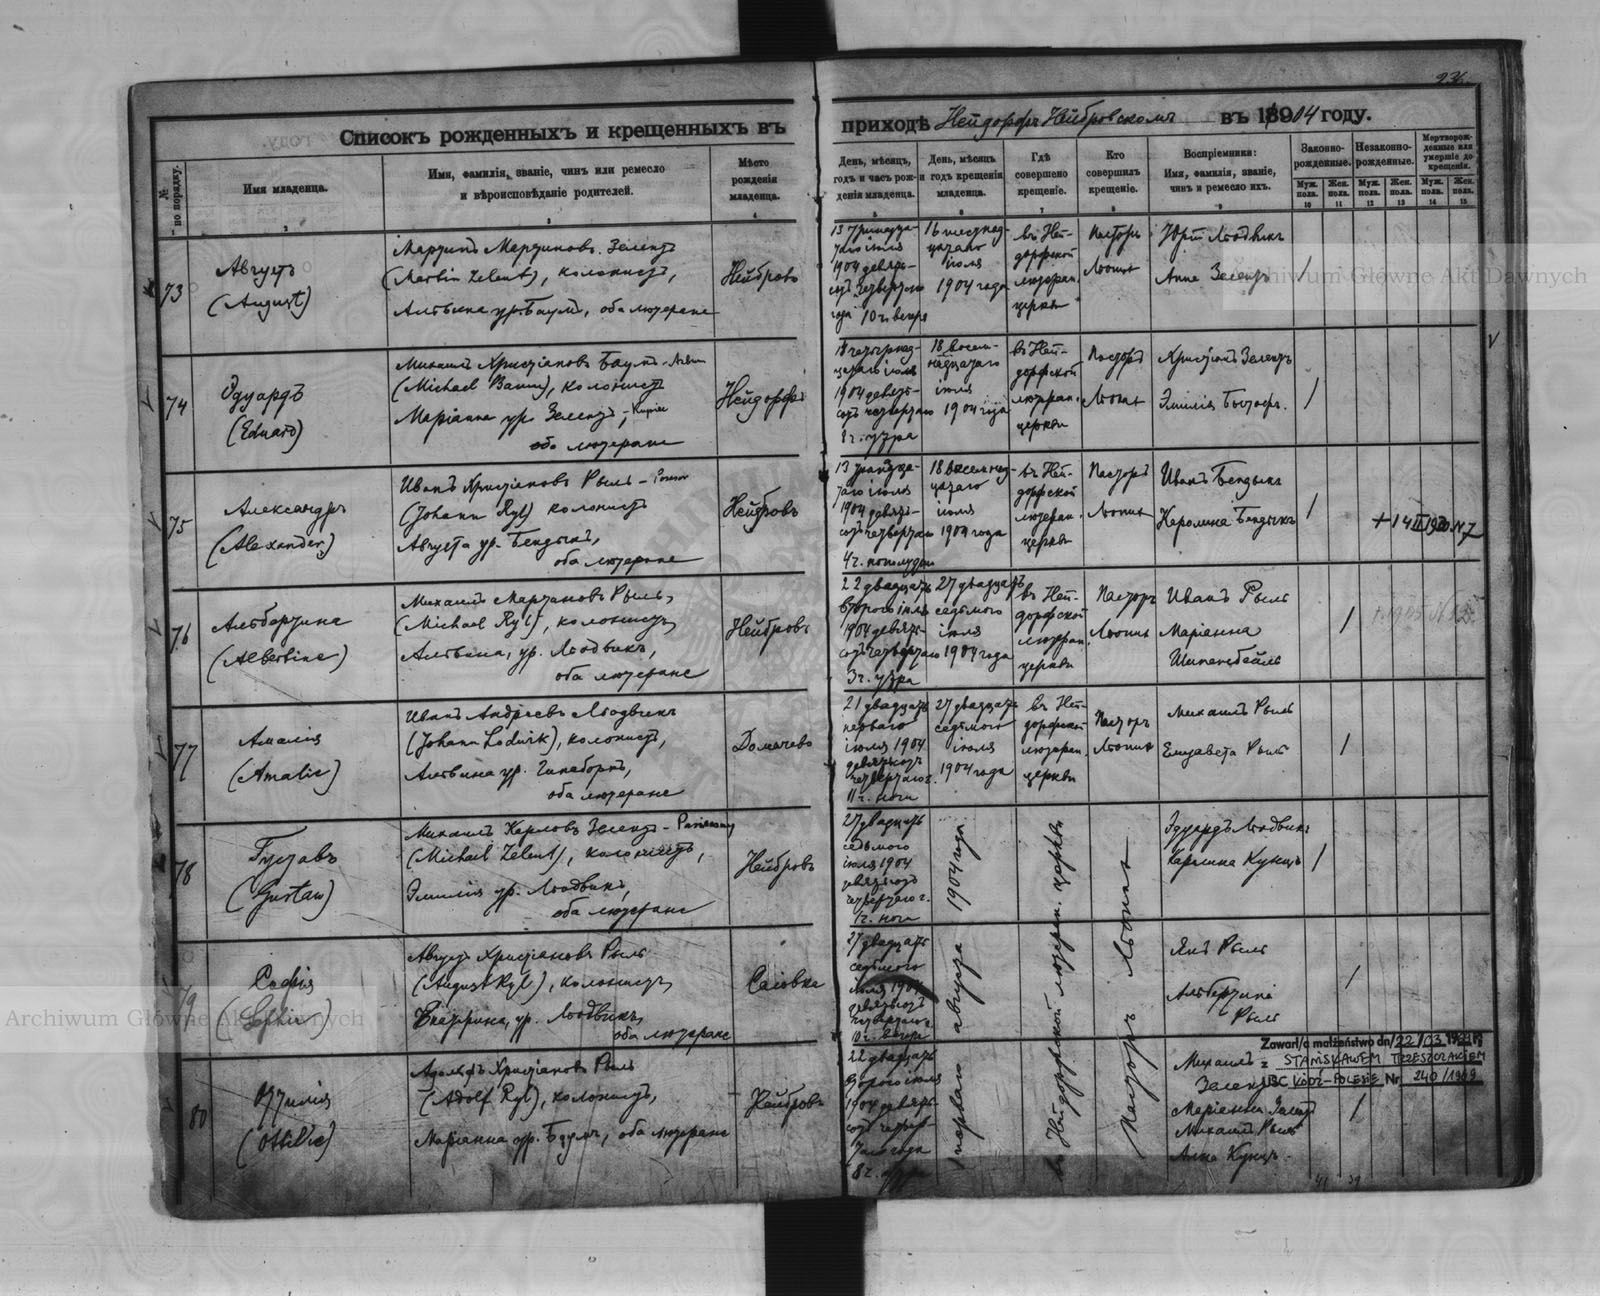 236.
Списокъ рожденныхъ и крещенныхъ въ приходѣ Нейдорфъ Нейбровскомъ въ 1904 году.
№ по порядку.
Имя младенца.
Имя, фамилія, званіе, чинъ или ремесло
и вѣроисповѣданіе родителей.
Мѣсто
рожденія
младенца.
День, мѣсяцъ,
годъ и часъ рож-
денія младенца.
День, мѣсяцъ
и годъ крещенія
младенца.
Гдѣ
совершено
крещеніе.
Кто
совершилъ
крещеніе.
Воспріемники:
Имя, фамилія, званіе,
чинъ и ремесло ихъ.
Законно-
рожденные.
Незаконно-
рожденные.
Мертворож-
денные или
умершіе до
крещенія.
Муж. пола. Жен. пола. Муж. пола. Жен. пола. Муж. пола. Жен. пола.
1 2 3 4 5 6 7 8 9 10 11 12 13 14 15
73
Августъ
(August)
Мартинъ Мартиновъ Зелентъ
(Martin Zelent), колонистъ,
Альвина ур. Баумъ, оба лютеране
Нейбровъ
13 тринадца-
таго іюля
1904 девять-
сотъ четвертаго
года 10 ч. вечера
16 шестнад-
цатаго
іюля
1904 года
въ Ней-
дорфской
лютеран.
церкви
Пасторъ
Людвикъ
Анна Зелентъ
74
Эдуардъ
(Eduard)
Михаилъ Христіановъ Баумъ
(Michael Baum), колонистъ
Маріанна ур. Зелентъ,
оба лютеране
Нейдорфъ
1904 девять-
сотъ четвертаго
8 ч. утра
18 восем-
надцатаго
іюля
1904 года
въ Ней-
дорфской
лютеран.
церкви
Пасторъ
Христіанъ Зелентъ
Эмилія
75
Александръ
(Alexander)
Иванъ Христіановъ Рыль
(Johann Ryl) колонистъ
Августа ур. Бендыкъ,
оба лютеране
Нейбровъ
13 тринадца-
таго іюля
1904 девять-
сотъ четвертаго
4 ч. пополудни
18 восемнад-
цатаго
іюля
1904 года
въ Ней-
дорфской
лютеран.
церкви
Пасторъ
Иванъ Бендыкъ
Каролина Бендыкъ
76
Альбертина
(Albertine)
Михаилъ Мартиновъ Рыль,
(Michael Ryl), колонистъ,
Альвина, ур. Людвикъ,
оба лютеране
Нейбровъ
22 двадцать
второго іюля
1904 девять-
сотъ четвертаго
3 ч. утра
27 двадцать
седьмого
іюля
1904 года
въ Ней-
дорфской
лютеран.
церкви
Пасторъ
Иванъ Рыль
Маріанна
77
Амалія
(Amalie)
Иванъ Андреевъ Людвикъ
(Johann Ludwik), колонистъ,
Альвина ур.
оба лютеране
Домачево
21 двадцать
перваго
іюля 1904
девятьсотъ
четвертаго г.
11 ч. ночи
27 двадцать
седьмого
іюля
1904 года
въ Ней-
дорфской
лютеран.
церкви
Пасторъ
Михаилъ Рыль
Елизавета Рыль
78
Густавъ
(Gustav)
Михаилъ Карловъ Зелентъ
(Michael Zelent), колонистъ,
Эмилія ур. Людвикъ,
оба лютеране
Нейбровъ
27 двадцать
седьмого
іюля 1904
девятьсотъ
четвертаго г.
1 ч. ночи
Эдуардъ Людвикъ
Каролина Кунцъ
79
Софія
(Sophie)
Августъ Христіановъ Рыль
(August Ryl), колонистъ,
ур. Людвикъ,
оба лютеране
27 двадцать
седьмого
іюля 1904
девятьсотъ
четвертаго г.
10 ч. вечера
Янъ Рыль
Альбертина
Рыль
80
Оттилія
(Ottilie)
Адольфъ Христіановъ Рыль
(Adolf Ryl), колонистъ,
Маріанна ур. Баумъ, оба лютеране
Нейбровъ
22 двадцать
второго іюля
1904 девять-
сотъ четвер-
таго года
8 ч. утра
1 перваго августа 1904 года
въ Нейдорфской лютеран. церкви
Пасторъ
Михаилъ
Зелентъ
Маріанна Зелентъ
Михаилъ Рыль
Анна Кунцъ
Zawarł/a małżeństwo dn/22/03
z STANISŁAWEM TRZESZCZAKIEM
USC ŁÓDŹ-POLESIE Nr 240/1969
Archiwum Główne Akt Dawnych
Archiwum Główne Akt Dawnych